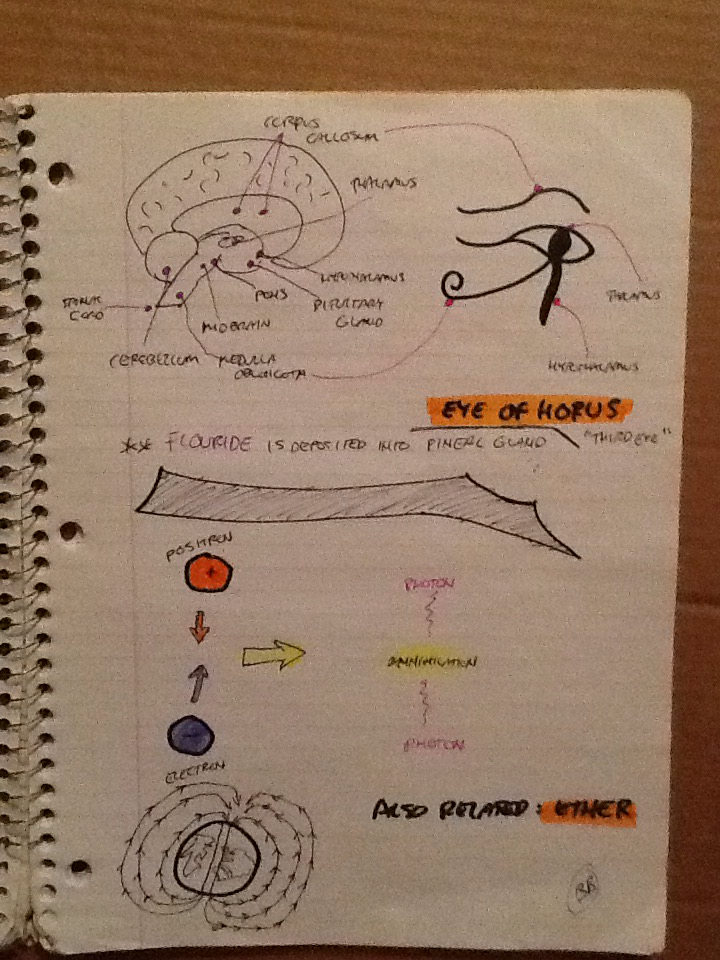 CORPUS
CALLOSUM
THALAMUS
HYPOTHALAMUS
PONS
PITUITARY
GLAND
SPINAL
CORD
MIDBRAIN
CEREBELLUM
MEDULLA
OBLONGATA
THALAMUS
HYPOTHALAMUS
EYE OF HORUS
** FLOURIDE IS DEPOSITED INTO PINEAL GLAND "THIRD EYE"
POSITRON
+
PHOTON
ANNIHILATION
-
PHOTON
ELECTRON
ALSO RELATED: ETHER
BB